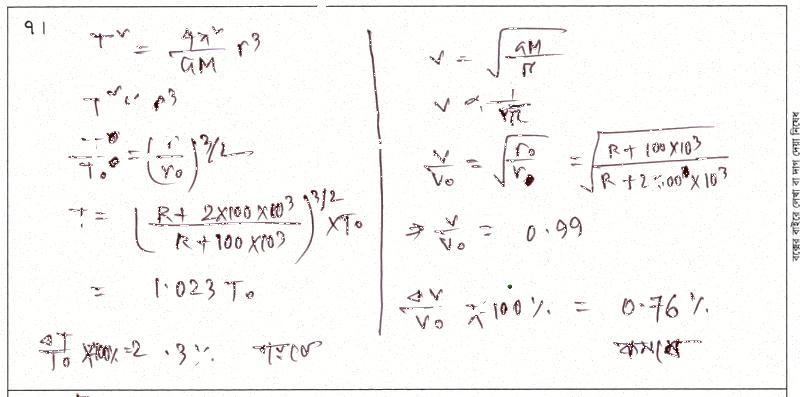 ৭।
T² = 4π²/GM r³
T² ∝ r³
T/T₀ = (r/r₀)^3/2
T = (R + 2×100×10³ / R + 100×10³)^3/2 × T₀
= 1.023 T₀
ΔT/T₀ × 100% = 2.3% বাড়বে
v = √(GM/r)
v ∝ 1/√r
v/v₀ = √(r₀/r) = √(R + 100×10³ / R + 2×100×10³)
⇒ v/v₀ = 0.99
Δv/v₀ × 100% = 0.76%
কমবে
বক্সের বাইরে লেখা বা দাগ দেয়া নিষেধ